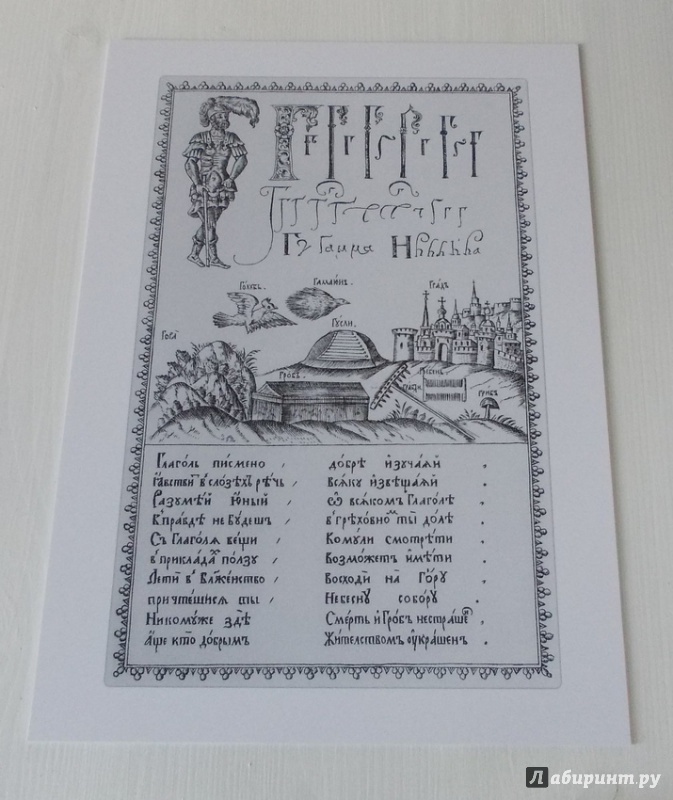 Гамма
Голубь. Гамаюнъ. Градъ
Гусли.
Гора
Гробъ. Гребень.
Грабли
Грибъ
Глаголь писмено, добрѣ изучаяй.
ꙗвствѣй въ слозѣхъ рѣчь, всяку извѣщаяй.
Разумѣй юный, ѿ всякомъ Глаголѣ.
въ правдѣ не будешъ, въ грѣховно ты долѣ.
Съ Глаголя вещи, Комули смотрѣти.
въ приклада ползу, возможетъ имѣти.
Лети въ Блаженство, восходи на Гору.
причтешися ты, Небесну собору.
Никомуже здѣ, Смерть и Гробъ нестрашен
аще кто добрымъ Жителствомъ украшенъ.
Лабиринт.ру